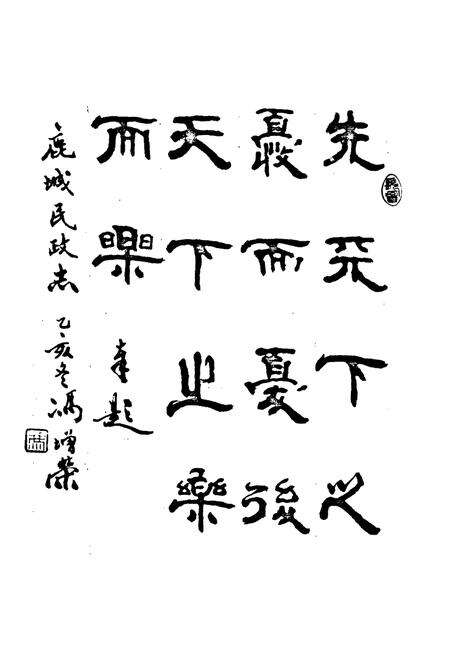 先天下之
憂而憂後
天下之樂
而樂 奉題
鹿城民政志 乙亥冬馮增榮